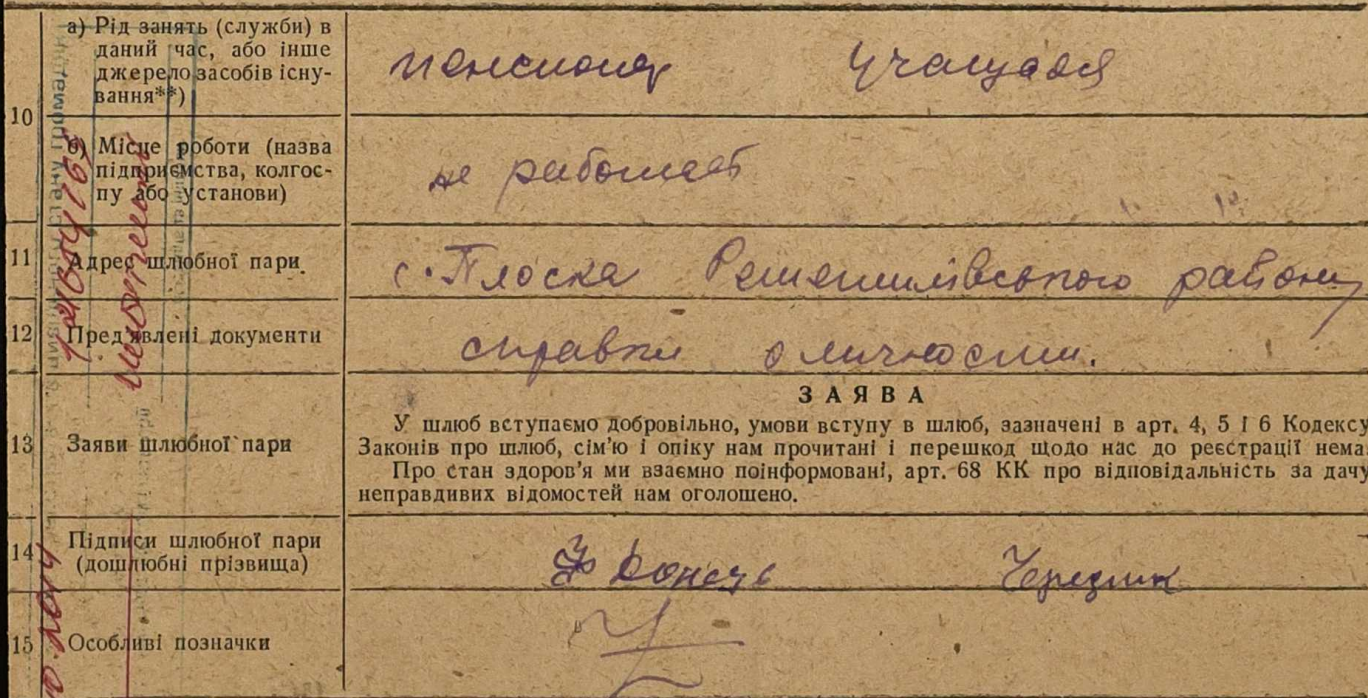 10
а) Рід занять (служби) в
даний час, або інше
джерело засобів існу-
вання**)
пенсионер учащаяся
б) Місце роботи (назва
підприємства, колгос-
пу або установи)
не работает
11 Адрес шлюбної пари
с. Плоска Решетилівського району
12 Пред'явлені документи
справки о личности.
13 Заяви шлюбної пари
ЗАЯВА
У шлюб вступаємо добровільно, умови вступу в шлюб, зазначені в арт. 4, 5 і 6 Кодексу
Законів про шлюб, сім'ю і опіку нам прочитані і перешкод щодо нас до реєстрації нема.
Про стан здоров'я ми взаємно поінформовані, арт. 68 КК про відповідальність за дачу
неправдивих відомостей нам оголошено.
14 Підписи шлюбної пари
(дошлюбні прізвища)
Чередник
15 Особливі позначки